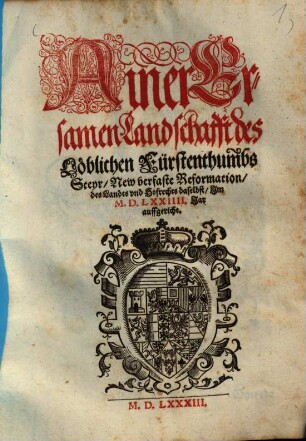 Ainer Er-
samen Landschafft des
Löblichen Fürstenthumbs
Steyr / New verfaste Reformation /
des Landes vnd Hofrechts daselbst / Im
M. D. LXXIIII. Jar
auffgericht.
M. D. LXXXIII.